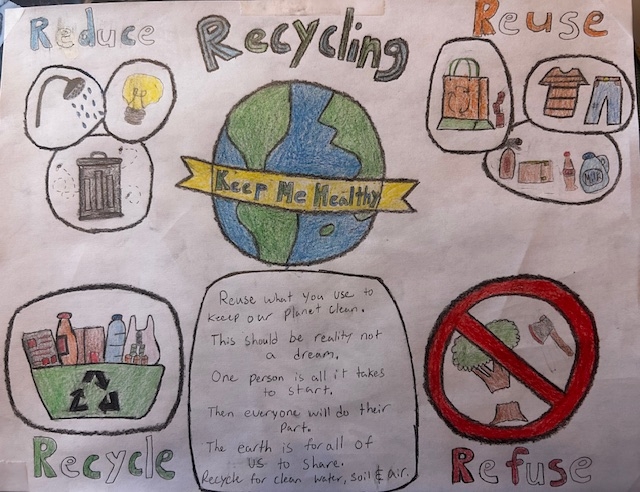 Reduce
Recycling
Reuse
Keep Me Healthy
Milk
Reuse what you use to
keep our planet clean.
This should be reality not
a dream.
One person is all it takes
to start.
Then everyone will do their
Part.
The earth is for all of
us to share.
Recycle for clean water, soil & air.
Recycle
Refuse